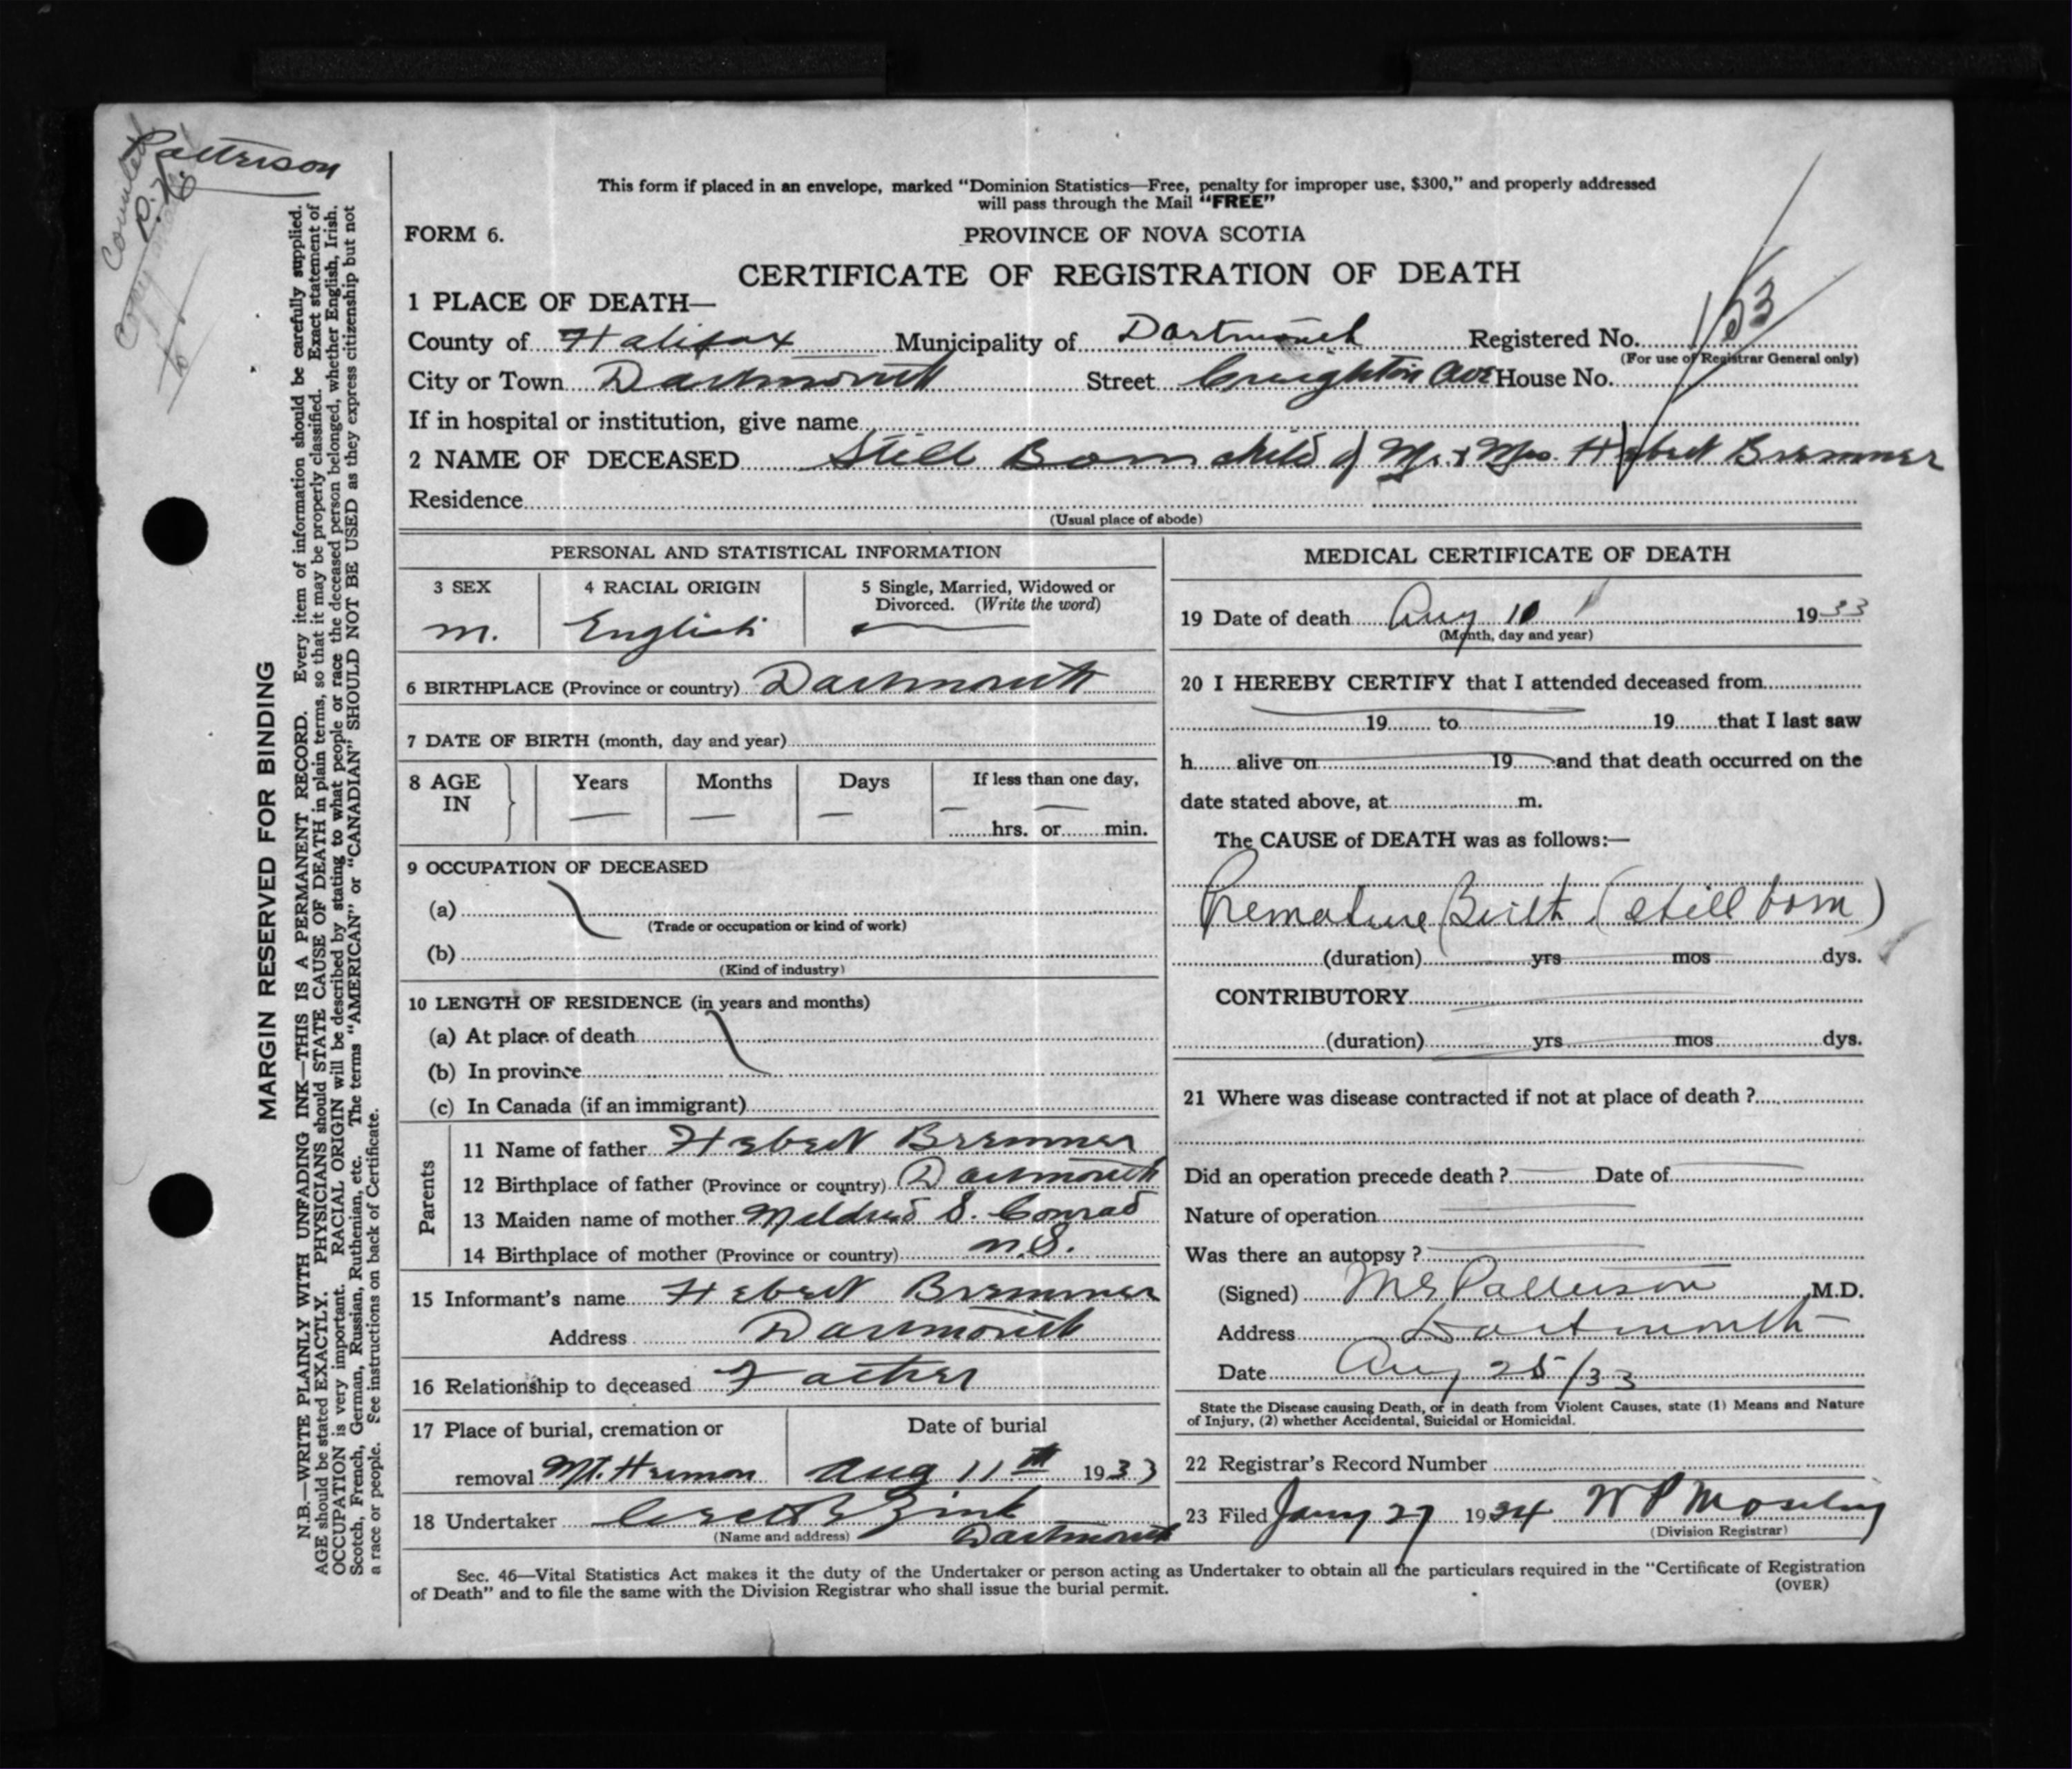 Patterson
This form if placed in an envelope, marked “Dominion Statistics—Free, penalty for improper use, $300,” and properly addressed
will pass through the Mail “FREE”
FORM 6.
PROVINCE OF NOVA SCOTIA
CERTIFICATE OF REGISTRATION OF DEATH
1 PLACE OF DEATH—
County of Halifax Municipality of Dartmouth Registered No. 153
(For use of Registrar General only)
City or Town Dartmouth Street Creighton Ave House No.
If in hospital or institution, give name
2 NAME OF DECEASED Still Born child of Mr. & Mrs. Hebert Bremner
Residence
(Usual place of abode)
PERSONAL AND STATISTICAL INFORMATION
3 SEX 4 RACIAL ORIGIN 5 Single, Married, Widowed or
Divorced. (Write the word)
m. English
6 BIRTHPLACE (Province or country) Dartmouth
7 DATE OF BIRTH (month, day and year)
8 AGE Years Months Days If less than one day,
IN — — — — —
hrs. or min.
9 OCCUPATION OF DECEASED
(a)
(Trade or occupation or kind of work)
(b)
(Kind of industry)
10 LENGTH OF RESIDENCE (in years and months)
(a) At place of death
(b) In province
(c) In Canada (if an immigrant)
Parents
11 Name of father Hebert Bremner
12 Birthplace of father (Province or country) Dartmouth
13 Maiden name of mother Mildred S. Conrad
14 Birthplace of mother (Province or country) N.S.
15 Informant's name Hebert Bremner
Address Dartmouth
16 Relationship to deceased Father
17 Place of burial, cremation or Date of burial
removal Mt. Hermon Aug 11th 1933
18 Undertaker Zink
(Name and address) Dartmouth
MEDICAL CERTIFICATE OF DEATH
19 Date of death Aug 10 1933
(Month, day and year)
20 I HEREBY CERTIFY that I attended deceased from
19 to 19 that I last saw
h alive on 19 and that death occurred on the
date stated above, at m.
The CAUSE of DEATH was as follows:—
Premature Birth (still born)
(duration) yrs mos dys.
CONTRIBUTORY
(duration) yrs mos dys.
21 Where was disease contracted if not at place of death ?
Did an operation precede death ? Date of
Nature of operation
Was there an autopsy ?
(Signed) Patterson M.D.
Address Dartmouth
Date Aug 25/33
State the Disease causing Death, or in death from Violent Causes, state (1) Means and Nature
of Injury, (2) whether Accidental, Suicidal or Homicidal.
22 Registrar's Record Number
23 Filed Jany 27 1934 W P Moseley
(Division Registrar)
Sec. 46—Vital Statistics Act makes it the duty of the Undertaker or person acting as Undertaker to obtain all the particulars required in the “Certificate of Registration
of Death” and to file the same with the Division Registrar who shall issue the burial permit.
(OVER)
MARGIN RESERVED FOR BINDING
N.B.—WRITE PLAINLY WITH UNFADING INK—THIS IS A PERMANENT RECORD. Every item of information should be carefully supplied.
AGE should be stated EXACTLY. PHYSICIANS should STATE CAUSE OF DEATH in plain terms, so that it may be properly classified. Exact statement of
OCCUPATION is very important. RACIAL ORIGIN will be described by stating to what people or race the deceased person belonged, whether English, Irish,
Scotch, French, German, Russian, Ruthenian, etc. The terms “AMERICAN” or “CANADIAN” SHOULD NOT BE USED as they express citizenship but not
a race or people. See instructions on back of Certificate.